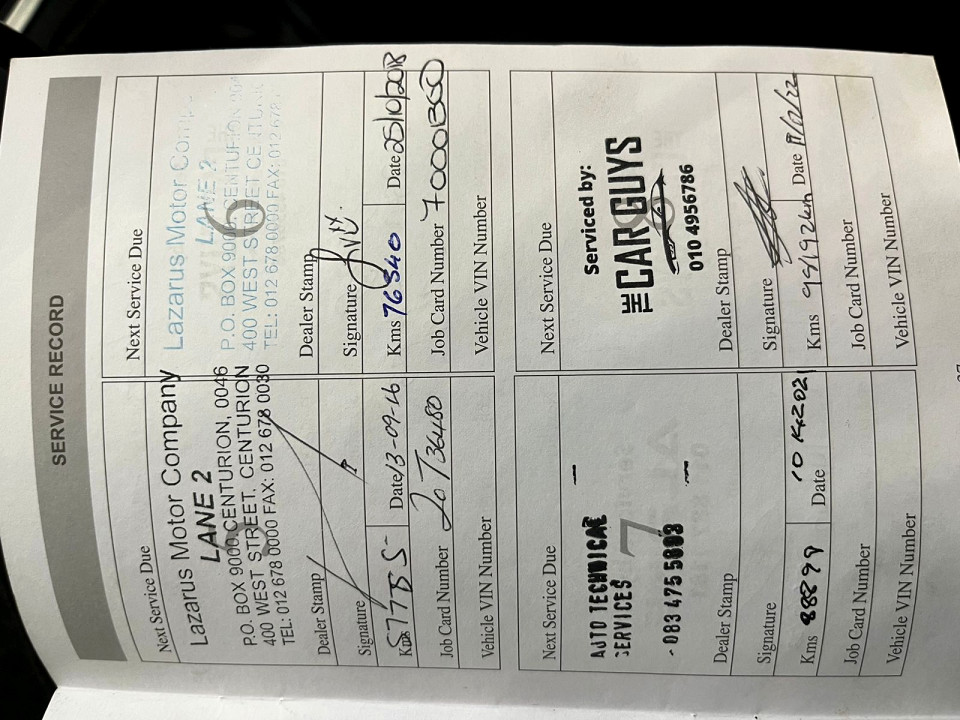 SERVICE RECORD
Next Service Due
Lazarus Motor Company
LANE 2
P.O. BOX 9000 CENTURION, 0046
400 WEST STREET, CENTURION
TEL: 012 678 0000 FAX: 012 678 0030
Dealer Stamp
Signature
Kms Date 13-09-16
Job Card Number
Vehicle VIN Number
Next Service Due
Lazarus Motor
LANE 2
6
P.O. BOX 9000, CENTURION
400 WEST STREET CENTURION
TEL: 012 678 0000 FAX: 012 678
Dealer Stamp
Signature
Kms 76340 Date 25/10/2018
Job Card Number
Vehicle VIN Number
Next Service Due
AUTO TECHNICAL
SERVICES
7
083 475 5808
Dealer Stamp
Signature
Kms 88899 Date
Job Card Number
Vehicle VIN Number
Next Service Due
Serviced by:
THE CARGUYS
010 4956786
Dealer Stamp
Signature
Kms 99192km Date
Job Card Number
Vehicle VIN Number